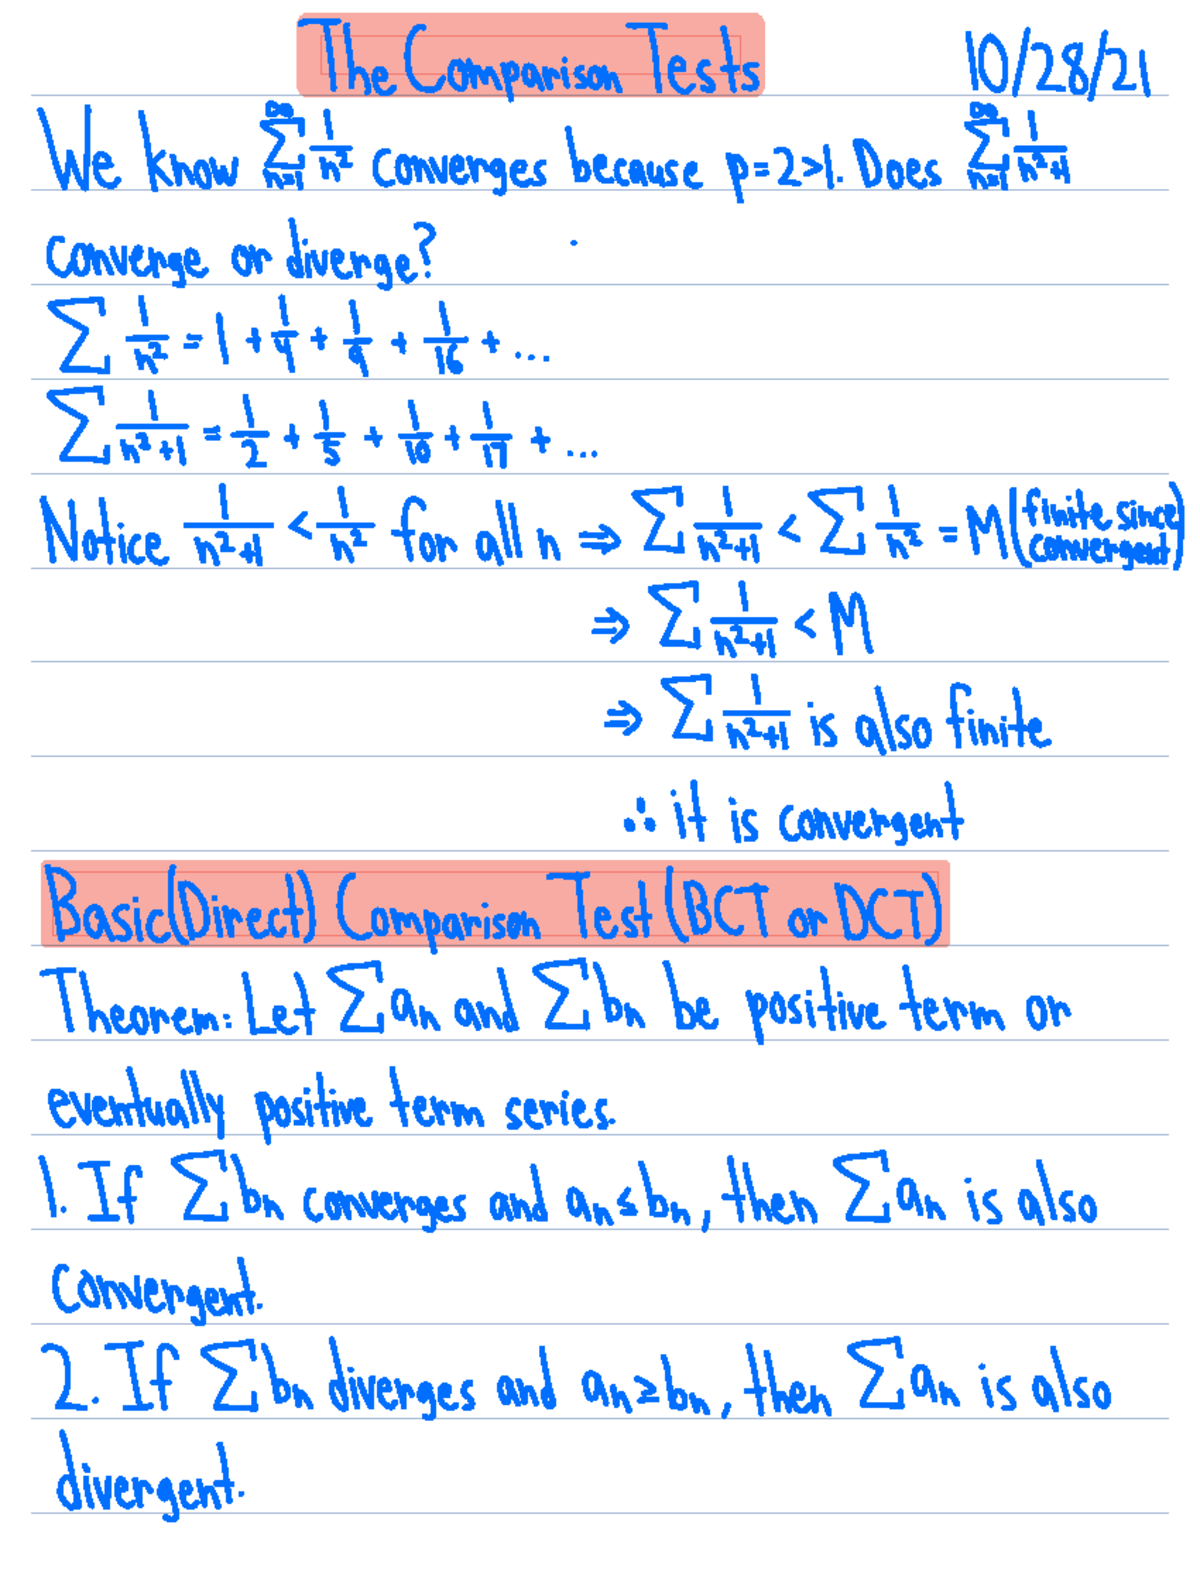 The Comparison Tests 10/28/21
We know ∑_{n=1}^{∞} 1/n² converges because p=2>1. Does ∑_{n=1}^{∞} 1/(n²+1)
converge or diverge?
∑ 1/n² = 1 + 1/4 + 1/9 + 1/16 + ...
∑ 1/(n²+1) = 1/2 + 1/5 + 1/10 + 1/17 + ...
Notice 1/(n²+1) < 1/n² for all n ⇒ ∑ 1/(n²+1) < ∑ 1/n² = M (finite since convergent)
⇒ ∑ 1/(n²+1) < M
⇒ ∑ 1/(n²+1) is also finite
∴ it is convergent
Basic(Direct) Comparison Test (BCT or DCT)
Theorem: Let ∑aₙ and ∑bₙ be positive term or
eventually positive term series.
1. If ∑bₙ converges and aₙ≤bₙ, then ∑aₙ is also
convergent.
2. If ∑bₙ diverges and aₙ≥bₙ, then ∑aₙ is also
divergent.